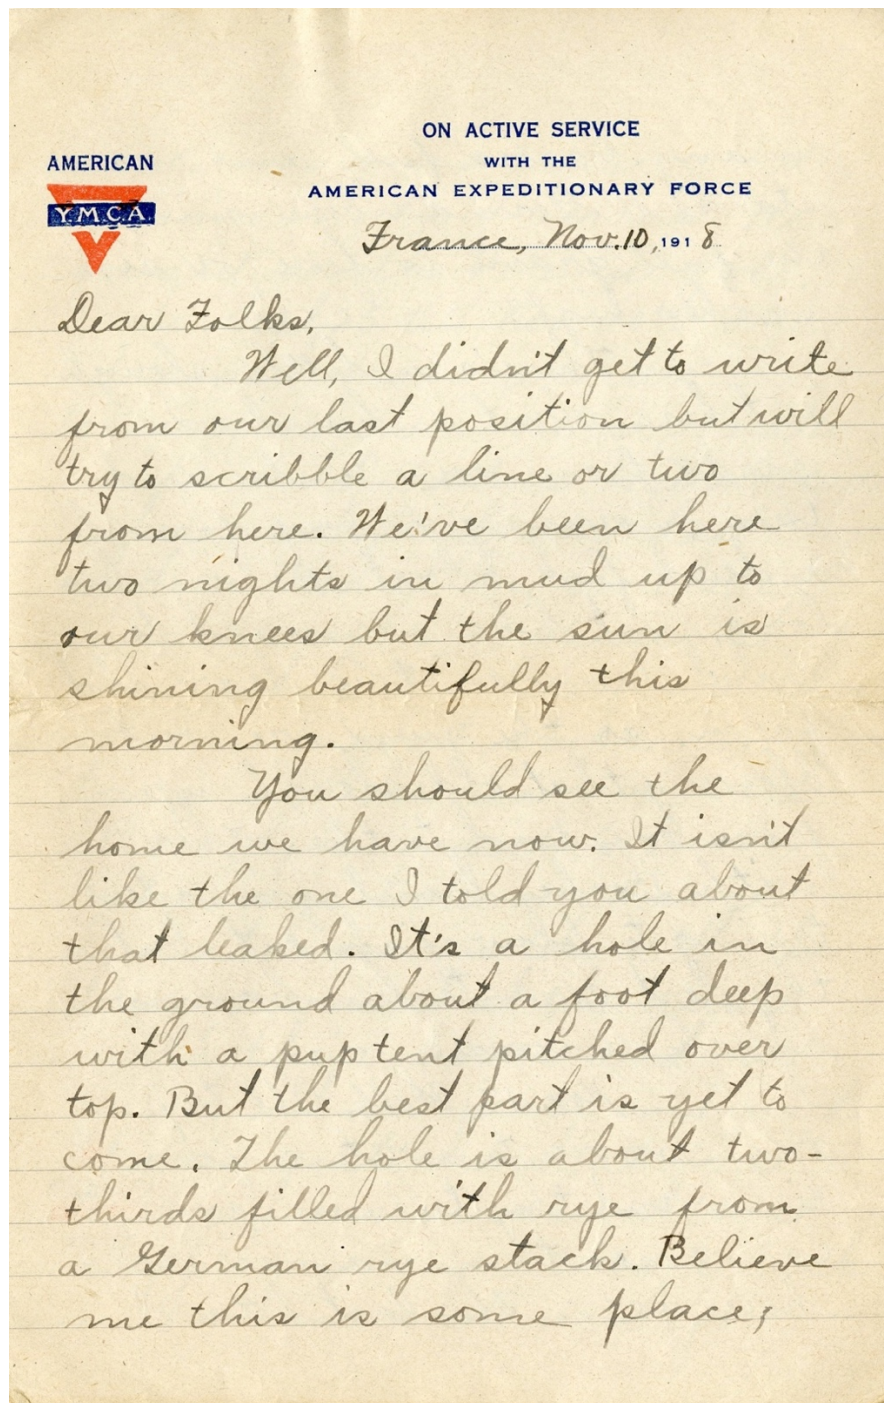 ON ACTIVE SERVICE
WITH THE
AMERICAN EXPEDITIONARY FORCE
AMERICAN
Y.M.C.A.
France, Nov. 10, 1918
Dear Folks,
Well, I didn't get to write
from our last position but will
try to scribble a line or two
from here. We've been here
two nights in mud up to
our knees but the sun is
shining beautifully this
morning.
You should see the
home we have now. It isn't
like the one I told you about
that leaked. It's a hole in
the ground about a foot deep
with a pup tent pitched over
top. But the best part is yet to
come. The hole is about two-
thirds filled with rye from
a German rye stack. Believe
me this is some place;